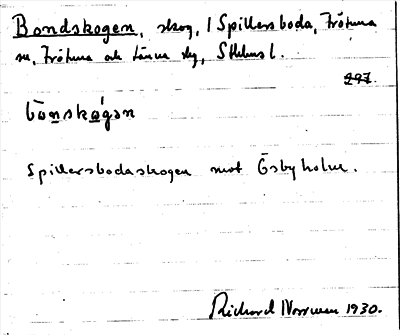 Bondskogen, skog, 1 Spillersboda, Frötuna
sn, Frötuna och Länna slg, Sthlms l.
297.
bo̅nskógan
Spillersbodaskogen mot Össbyholm.
Richard Norrman 1930.